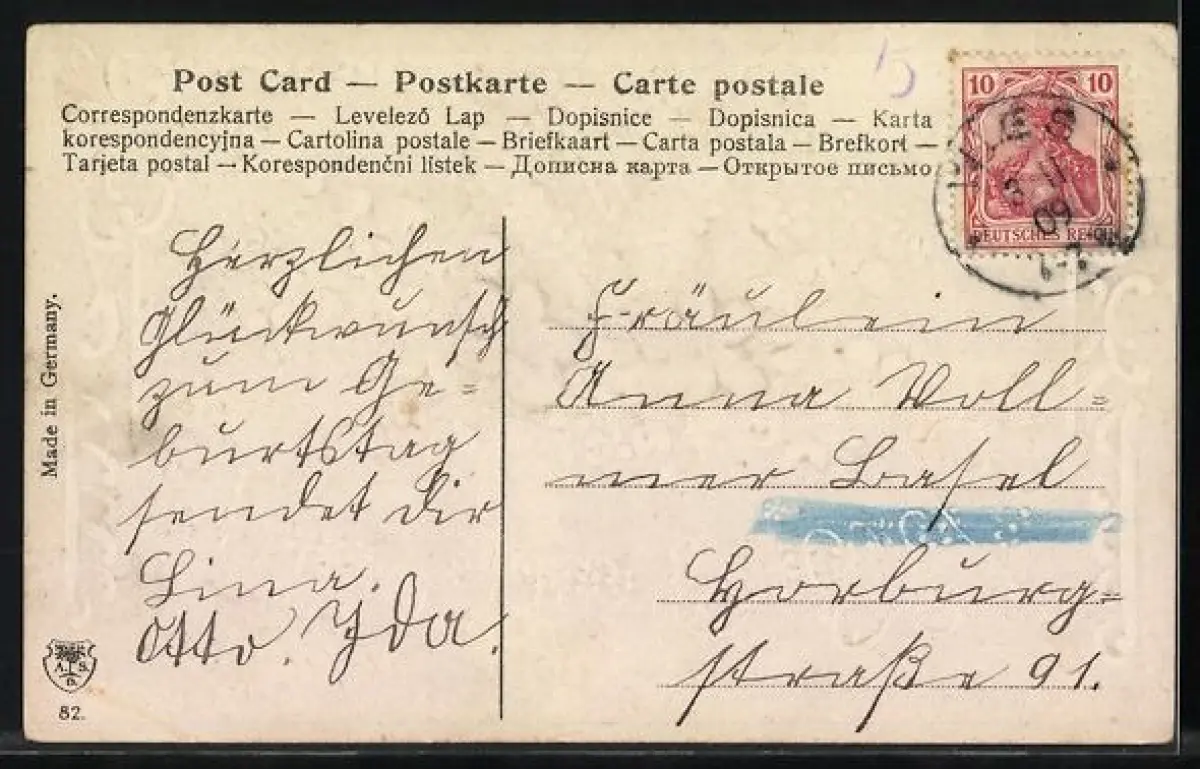 Post Card — Postkarte — Carte postale
Correspondenzkarte — Levelező Lap — Dopisnice — Dopisnica — Karta
korespondencyjna — Cartolina postale — Briefkaart — Carta postala — Brefkort —
Tarjeta postal — Korespondenčni listek — Дописна карта — Открытое письмо
5
10 10
DEUTSCHES REICH
3 11
09
Made in Germany.
Herzlichen
Glückwunsch
zum Ge=
burtstag
sendet dir
Lina.
Otto. Ida.
Fräulein
Anna Voll=
mer Basel
Horburg=
straße 91.
A. S.
B.
82.